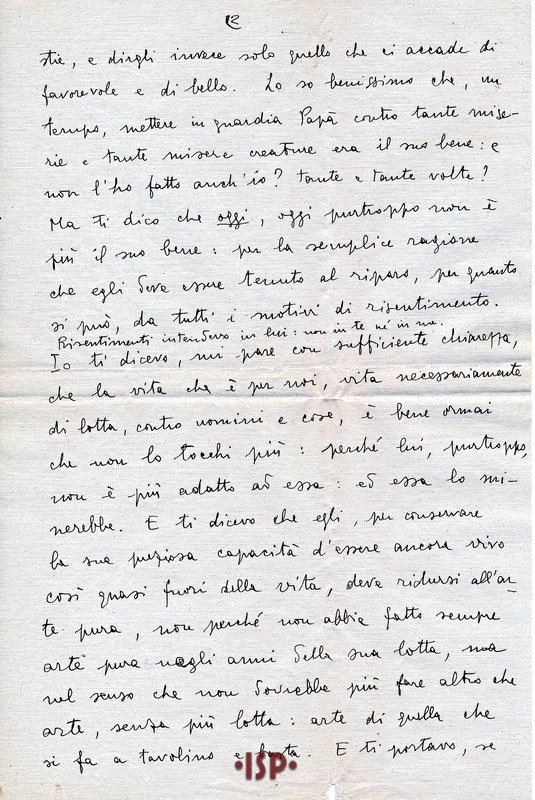 12
stie, e dirgli invece solo quello che ci accade di
favorevole e di bello. Lo so benissimo che, un
tempo, mettere in guardia Papà contro tante mise-
rie e tante misere creature era il suo bene: e
non l'ho fatto anch'io? tante e tante volte?
Ma ti dico che oggi, oggi purtroppo non è
più il suo bene: per la semplice ragione
che egli deve essere tenuto al riparo, per quanto
si può, da tutti i motivi di risentimento.
Risentimenti intendevo in lui: non in te né in me.
Io ti dicevo, mi pare con sufficiente chiarezza,
che la vita che è per noi, vita necessariamente
di lotta, contro uomini e cose, è bene ormai
che non lo tocchi più: perché lui, purtroppo,
non è più adatto ad essa: ed essa lo mi-
nerebbe. E ti dicevo che egli, per conservare
la sua preziosa capacità d'essere ancora vivo
così quasi fuori della vita, deve ridursi all'ar-
te pura, non perché non abbia fatto sempre
arte pura negli anni della sua lotta, ma
nel senso che non dovrebbe più fare altro che
arte, senza più lotta: arte di quella che
si fa a tavolino e basta. E ti portavo, se
•ISP•